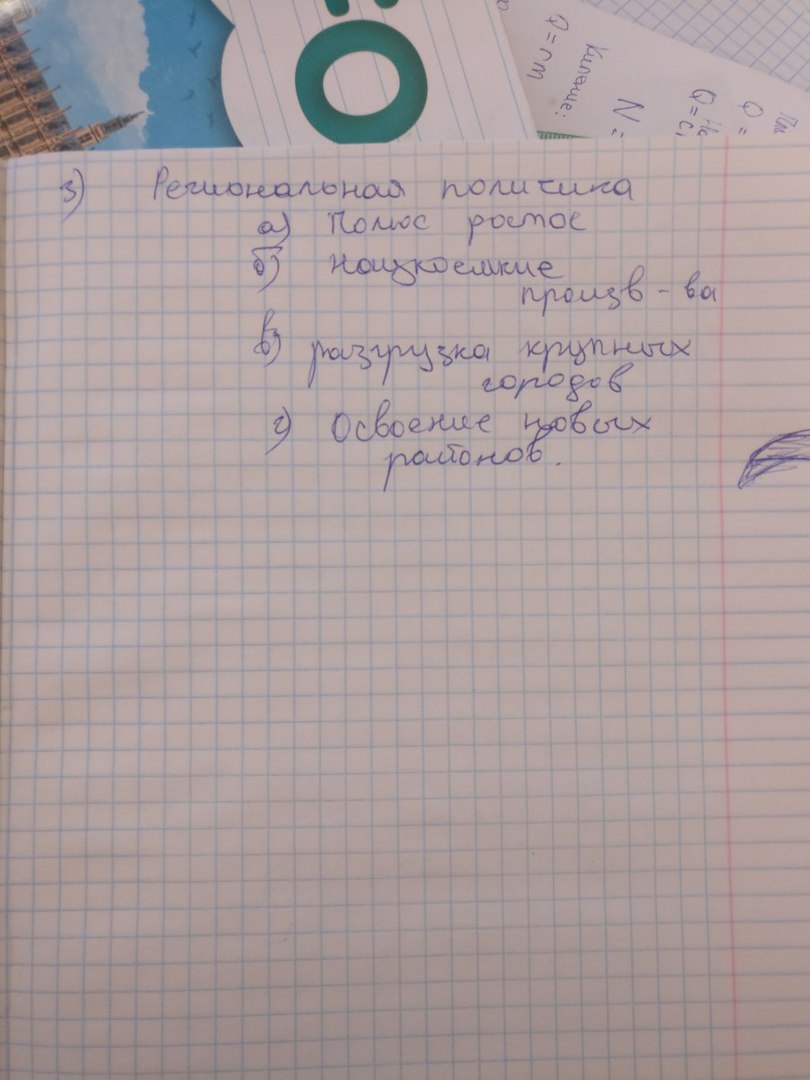 Q = rm
Кипение:
N =
Q =
3) Региональная политика
а) Полюс ростос
б) Наукоемкие
произв-ва
в) разгрузка крупных
городов
г) Освоение новых
районов.